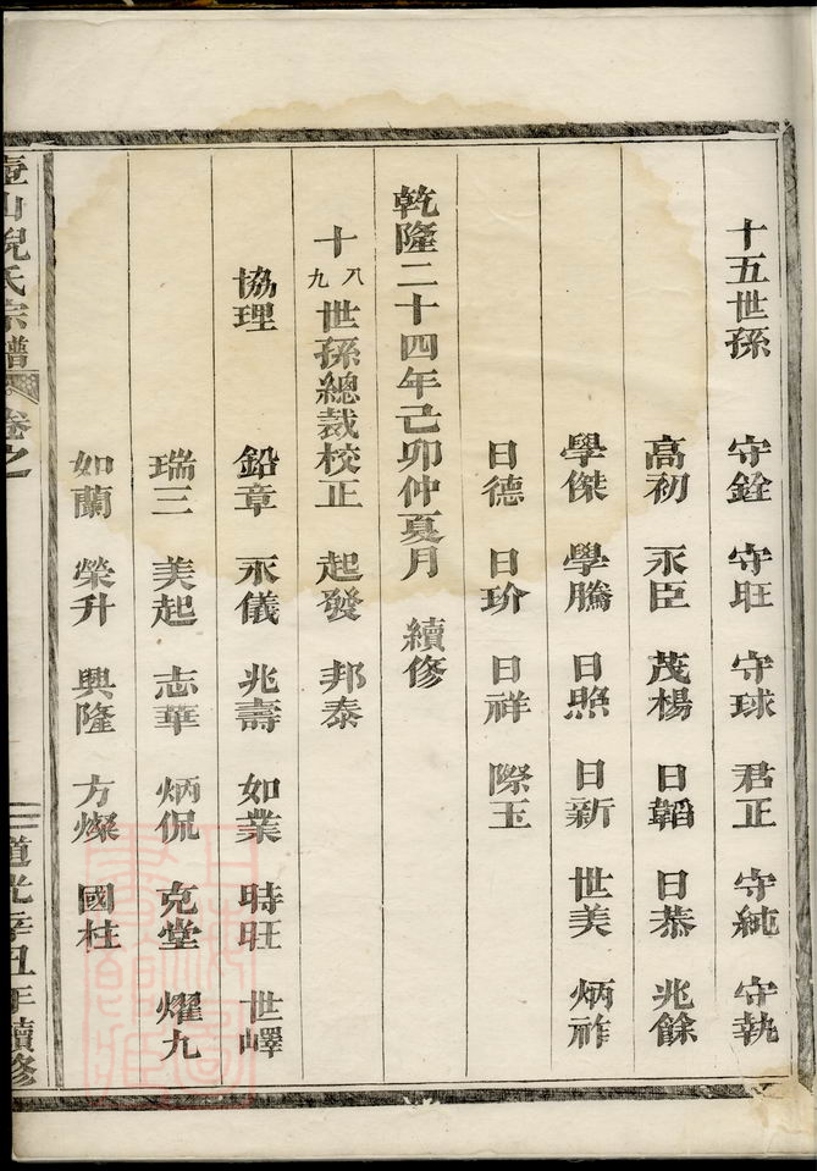 十五世孫 守銓 守旺 守球 君正 守純 守執
高初 永臣 茂楊 日韜 日恭 兆餘
學傑 學騰 日照 日新 世美 炳祚
日德 日玠 日祥 際玉
乾隆二十四年己卯仲夏月 續修
十八九世孫總裁校正 起發 邦泰
協理 鉛章 永儀 兆壽 如業 時旺 世嶧
瑞三 美起 志華 炳侃 克堂 燿九
如蘭 榮升 興隆 方燦 國柱
壺山倪氏宗譜 卷之一 道光辛丑年續修